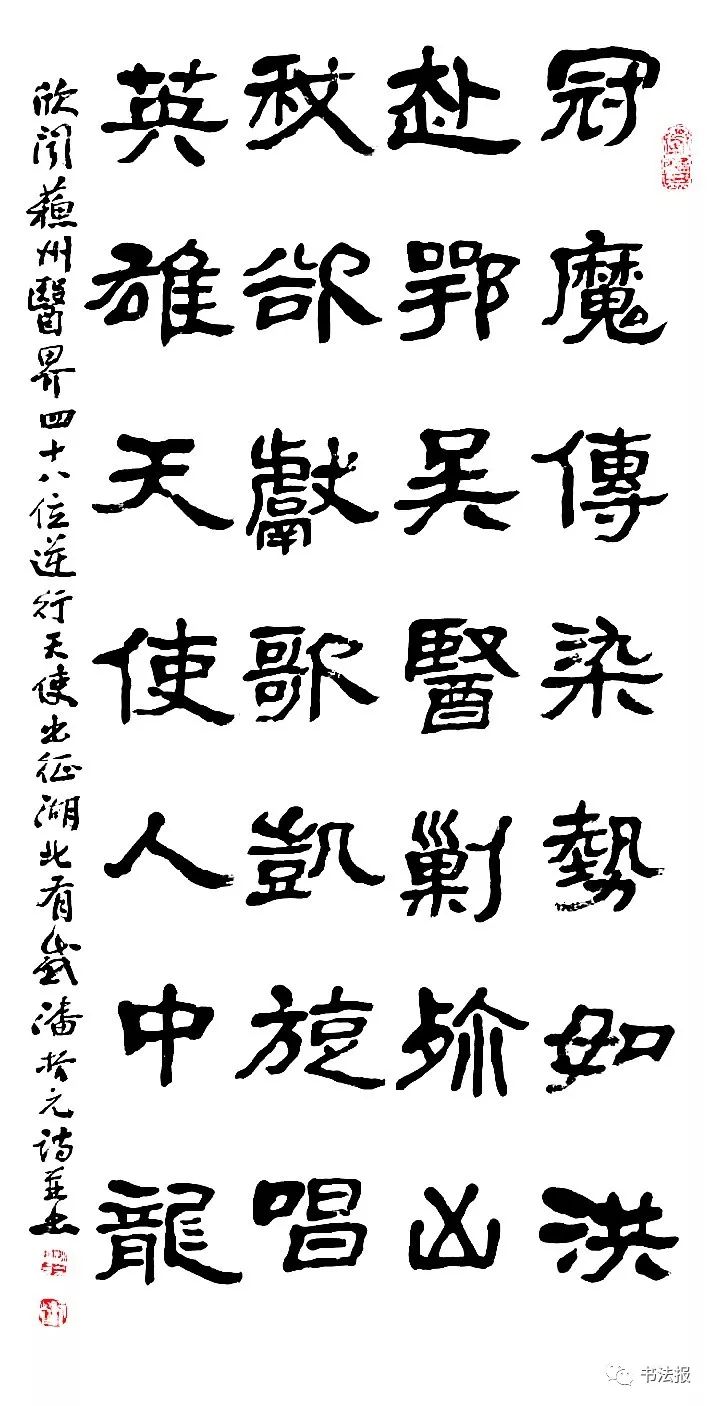 冠魔傳染勢如洪
赴鄂吴醫剿殄凶
我欲獻歌凱旋唱
英雄天使人中龍
欣聞蘇州醫界四十八位逆行天使出征湖北有感潘振元詩並書
书法报